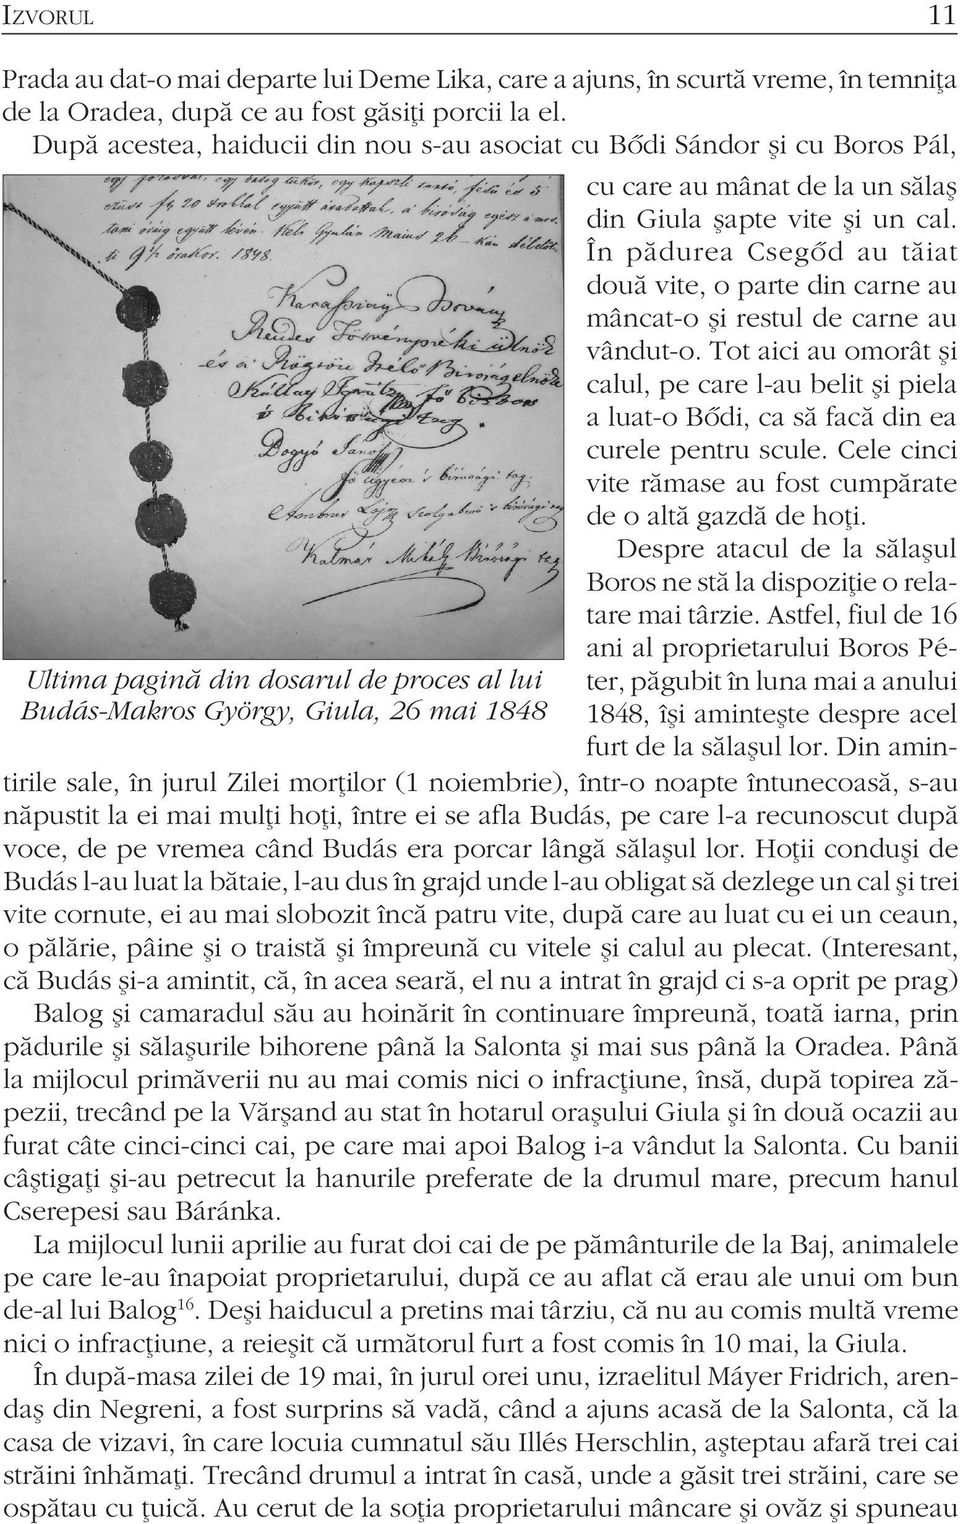 IZVORUL 11
Prada au dat-o mai departe lui Deme Lika, care a ajuns, în scurtă vreme, în temniţa
de la Oradea, după ce au fost găsiţi porcii la el.
După acestea, haiducii din nou s-au asociat cu Bődi Sándor şi cu Boros Pál,
cu care au mânat de la un sălaş
din Giula şapte vite şi un cal.
În pădurea Csegőd au tăiat
două vite, o parte din carne au
mâncat-o şi restul de carne au
vândut-o. Tot aici au omorât şi
calul, pe care l-au belit şi piela
a luat-o Bődi, ca să facă din ea
curele pentru scule. Cele cinci
vite rămase au fost cumpărate
de o altă gazdă de hoţi.
Despre atacul de la sălaşul
Boros ne stă la dispoziţie o rela-
tare mai târzie. Astfel, fiul de 16
ani al proprietarului Boros Pé-
ter, păgubit în luna mai a anului
1848, îşi aminteşte despre acel
furt de la sălaşul lor. Din amin-
egy balog tükör, egy kapszli tartó, fésű és 5
ezüst f 20 együtt a biróság egész a mos-
tani óráig együtt lévén. Kelt Gyulán Maius 26-kán délelőt-
ti 9½ órakor. 1848.
Karassiay István
Rendes Törvényszéki ülnök
és a Rögtön Ítélő Biróság elnöke
Kállay fő biró
Dogyó János
fő ügyész s birósági tag
Ambrus Lajz Szolgabiró s birósági tag
Kalmár Mihály Birósági tag
Ultima pagină din dosarul de proces al lui
Budás-Makros György, Giula, 26 mai 1848
tirile sale, în jurul Zilei morţilor (1 noiembrie), într-o noapte întunecoasă, s-au
năpustit la ei mai mulţi hoţi, între ei se afla Budás, pe care l-a recunoscut după
voce, de pe vremea când Budás era porcar lângă sălaşul lor. Hoţii conduşi de
Budás l-au luat la bătaie, l-au dus în grajd unde l-au obligat să dezlege un cal şi trei
vite cornute, ei au mai slobozit încă patru vite, după care au luat cu ei un ceaun,
o pălărie, pâine şi o traistă şi împreună cu vitele şi calul au plecat. (Interesant,
că Budás şi-a amintit, că, în acea seară, el nu a intrat în grajd ci s-a oprit pe prag)
Balog şi camaradul său au hoinărit în continuare împreună, toată iarna, prin
pădurile şi sălaşurile bihorene până la Salonta şi mai sus până la Oradea. Până
la mijlocul primăverii nu au mai comis nici o infracţiune, însă, după topirea ză-
pezii, trecând pe la Vărşand au stat în hotarul oraşului Giula şi în două ocazii au
furat câte cinci-cinci cai, pe care mai apoi Balog i-a vândut la Salonta. Cu banii
câştigaţi şi-au petrecut la hanurile preferate de la drumul mare, precum hanul
Cserepesi sau Báránka.
La mijlocul lunii aprilie au furat doi cai de pe pământurile de la Baj, animalele
pe care le-au înapoiat proprietarului, după ce au aflat că erau ale unui om bun
de-al lui Balog16. Deşi haiducul a pretins mai târziu, că nu au comis multă vreme
nici o infracţiune, a reieşit că următorul furt a fost comis în 10 mai, la Giula.
În după-masa zilei de 19 mai, în jurul orei unu, izraelitul Máyer Fridrich, aren-
daş din Negreni, a fost surprins să vadă, când a ajuns acasă de la Salonta, că la
casa de vizavi, în care locuia cumnatul său Illés Herschlin, aşteptau afară trei cai
străini înhămaţi. Trecând drumul a intrat în casă, unde a găsit trei străini, care se
ospătau cu ţuică. Au cerut de la soţia proprietarului mâncare şi ovăz şi spuneau